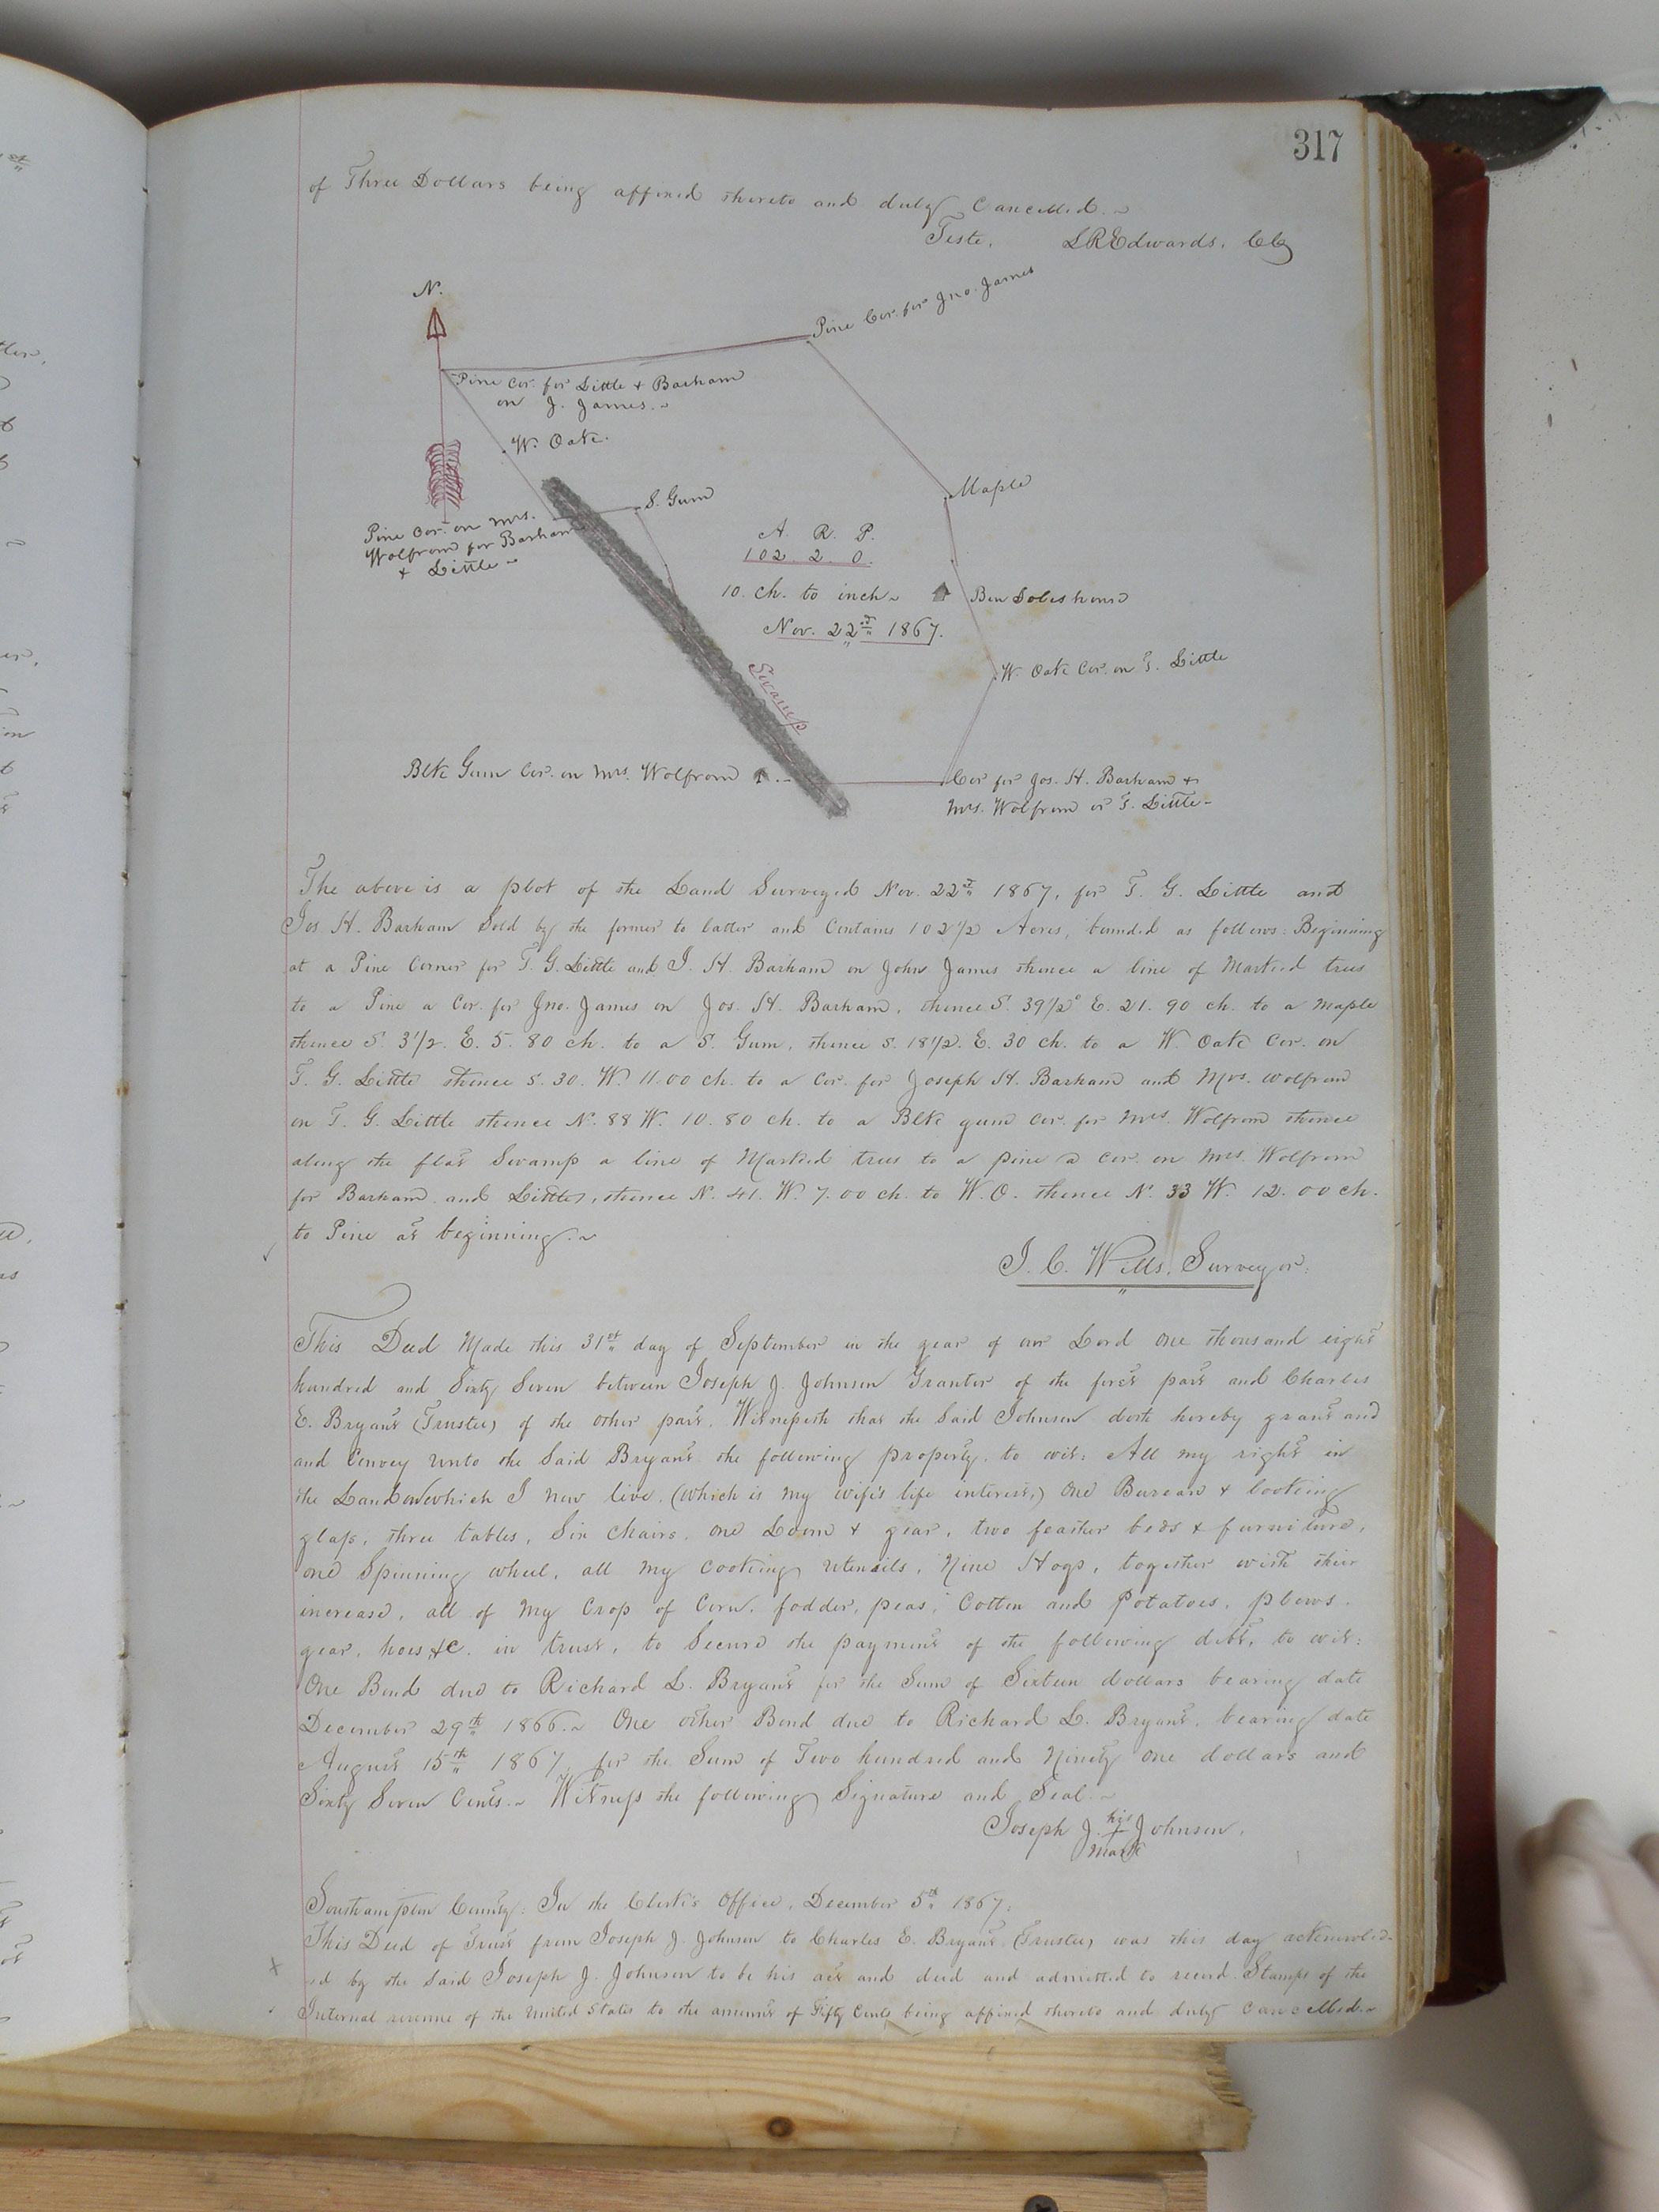 317
of Three Dollars being affixed thereto and duly Cancelled.~
Teste, L R Edwards. Clk
N.
Pine Cor. for Jno. James
Pine Cor. for Little + Barham
on J. James.~
W. Oak.
S. Gum
Maple
Pine Cor. on Mrs.
Wolfrom for Barham
+ Little~
A. R. P.
102. 2. 0.
10. ch. to inch~
Ben Doles house
Nov. 22nd 1867.
Swamp
W. Oak Cor. on T. Little
Blk Gum Cor. on Mrs. Wolfrom
Cor for Jos. H. Barham +
Mrs. Wolfrom or T. Little~
The above is a plot of the Land Surveyed Nov. 22nd 1867, for T. G. Little and
Jos. H. Barham Sold by the former to latter and Contains 102 1/2 Acres, bounded as follows: Beginning
at a Pine Corner for T. G. Little and J. H. Barham on John James thence a line of Marked trees
to a Pine a Cor. for Jno. James on Jos. H. Barham, thence S. 39 1/2° E. 21. 90 ch. to a Maple
thence S. 3 1/2. E. 5. 80 ch. to a S. Gum, thence S. 18 1/2. E. 30 ch. to a W. Oak Cor. on
T. G. Little thence S. 30. W. 11.00 ch. to a Cor. for Joseph H. Barham and Mrs. Wolfrom
on T. G. Little thence N. 88 W. 10. 80 ch. to a Blk gum Cor. for Mrs. Wolfrom thence
along the flat Swamp a line of Marked trees to a pine a Cor. on Mrs. Wolfrom
for Barham and Little, thence N. 41. W. 7. 00 ch. to W. O. thence N. 33 W. 12. 00 ch.
to Pine at beginning.~
J. C. Wills, Surveyor.
This Deed Made this 31st day of September in the year of our Lord One thousand eight
hundred and Sixty Seven between Joseph J. Johnson Grantor of the first part and Charles
E. Bryant (Trustee) of the other part. Witnesseth that the Said Johnson doth hereby grant and
and Convey unto the Said Bryant the following property, to wit: All my right in
the Land on which I now live, (which is my wife's life interest,) One Bureau & looking
glass, three tables, Six Chairs, one Loom & gear, two feather beds & furniture,
one Spinning wheel, all my Cooking utensils, Nine Hogs, together with their
increase, all of my Crop of Corn, fodder, peas, Cotton and Potatoes, plows,
gear, hoes, &c. in trust, to Secure the payment of the following debts, to wit:
One Bond due to Richard L. Bryant for the Sum of Sixteen dollars bearing date
December 29th 1866.~ One other Bond due to Richard L. Bryant, bearing date
August 15th 1867, for the Sum of Two hundred and Ninety One dollars and
Sixty Seven Cents.~ Witness the following Signature and Seal.~
Joseph J. his + mark Johnson.
Southampton County: In the Clerk's Office, December 5th 1867.
This Deed of Trust from Joseph J. Johnson to Charles E. Bryant (Trustee) was this day acknowled-
ed by the Said Joseph J. Johnson to be his act and deed and admitted to record. Stamps of the
Internal revenue of the United States to the amount of Fifty Cents being affixed thereto and duly Cancelled.~